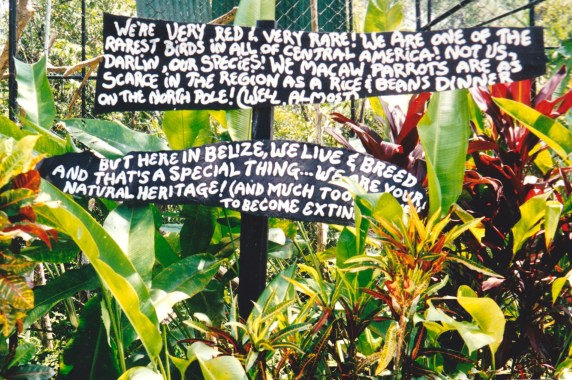 WE'RE VERY RED & VERY RARE! WE ARE ONE OF THE
RAREST BIRDS IN ALL OF CENTRAL AMERICA! NOT US,
DARLIN', OUR SPECIES! WE MACAW PARROTS ARE AS
SCARCE IN THE REGION AS A RICE & BEANS DINNER
ON THE NORTH POLE! (WELL, ALMOST
BUT HERE IN BELIZE, WE LIVE & BREED
AND THAT'S A SPECIAL THING... WE ARE YOUR
NATURAL HERITAGE! (AND MUCH TOO
TO BECOME EXTIN